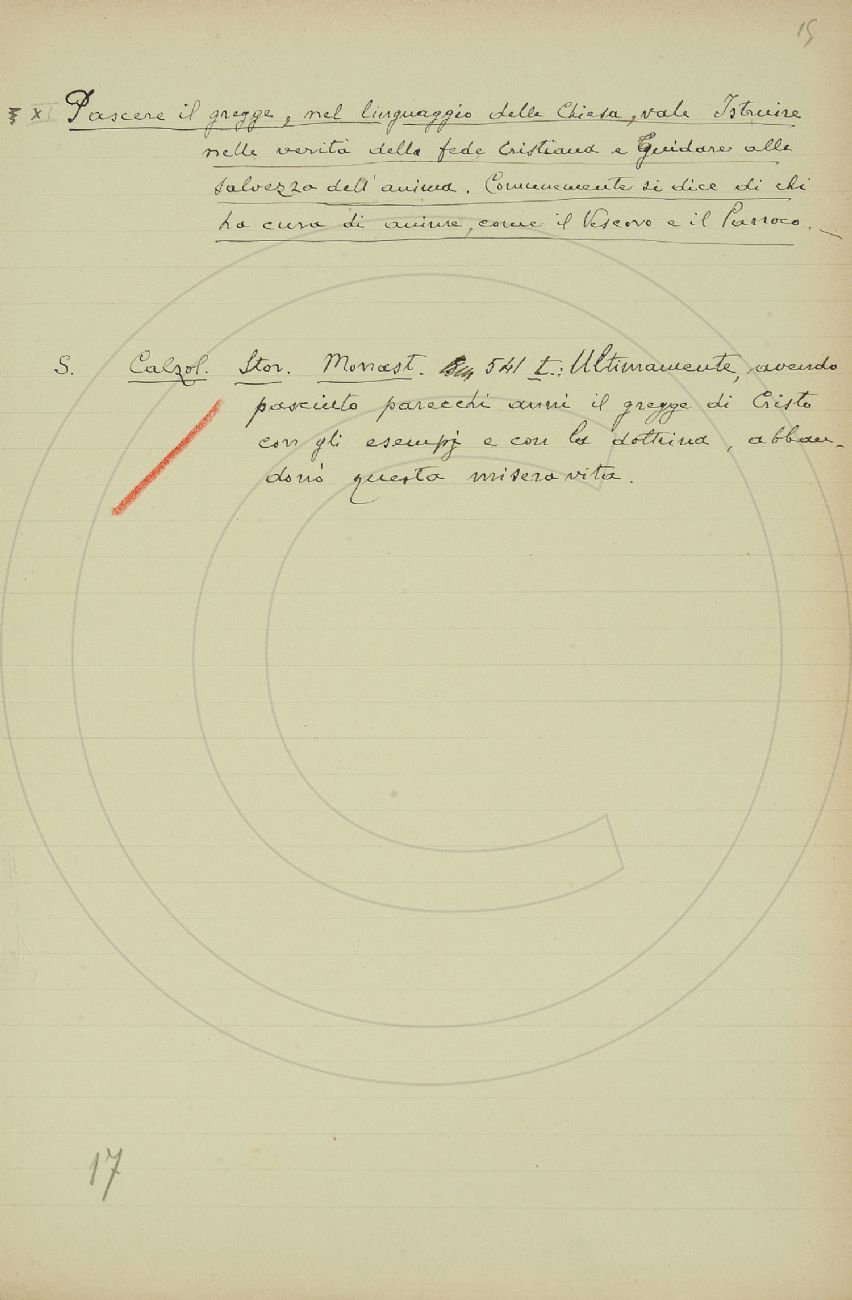 15
§ XI Pascere il gregge, nel linguaggio della Chiesa, vale Istruire
nelle verità della fede Cristiana e Guidare alla
salvezza dell'anima. Comunemente si dice di chi
ha cura di anime, come il Vescovo e il Parroco. –
S. Calzol. Stor. Monast. 541 t.: Ultimamente, avendo
pasciuto parecchi anni il gregge di Cristo
con gli esempj e con la dottrina, abban-
donò questa misera vita.
17